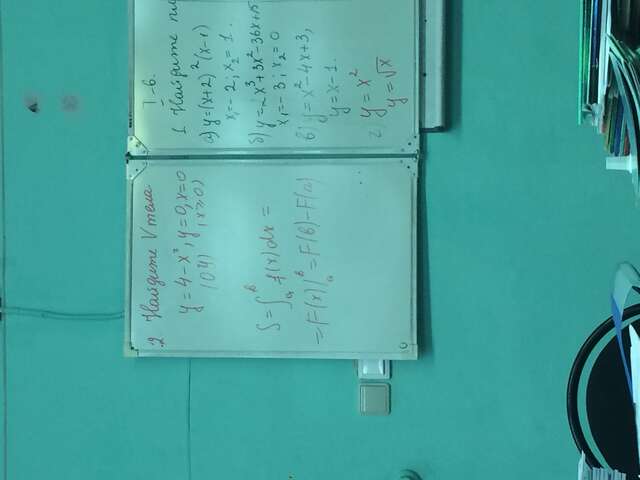 2 Найдите V тела
y = 4 - x², y = 0, x = 0
(OY) (x ≥ 0)
S = ∫ₐᵇ f(x) dx =
= F(x)|ₐᵇ = F(b) - F(a)
I-6.
1 Найдите
а) y = (x+2)²(x-1)
x₁ = -2; x₂ = 1.
б) y = 2x³ + 3x² - 36x + 15
x₁ = -3; x₂ = 0
в) y = x² - 4x + 3,
y = x - 1.
г) y = x²
y = √x